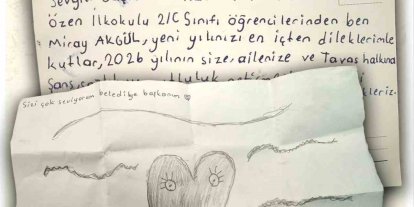 Özen İlkokulu 2/C Sınıfı öğrencilerinden ben
Miray AKGÜL, yeni yılınızı en içten dileklerimle
kutlar, 2026 yılının size, ailenize ve Tavas halkına
Sizi çok seviyorum belediye başkanım